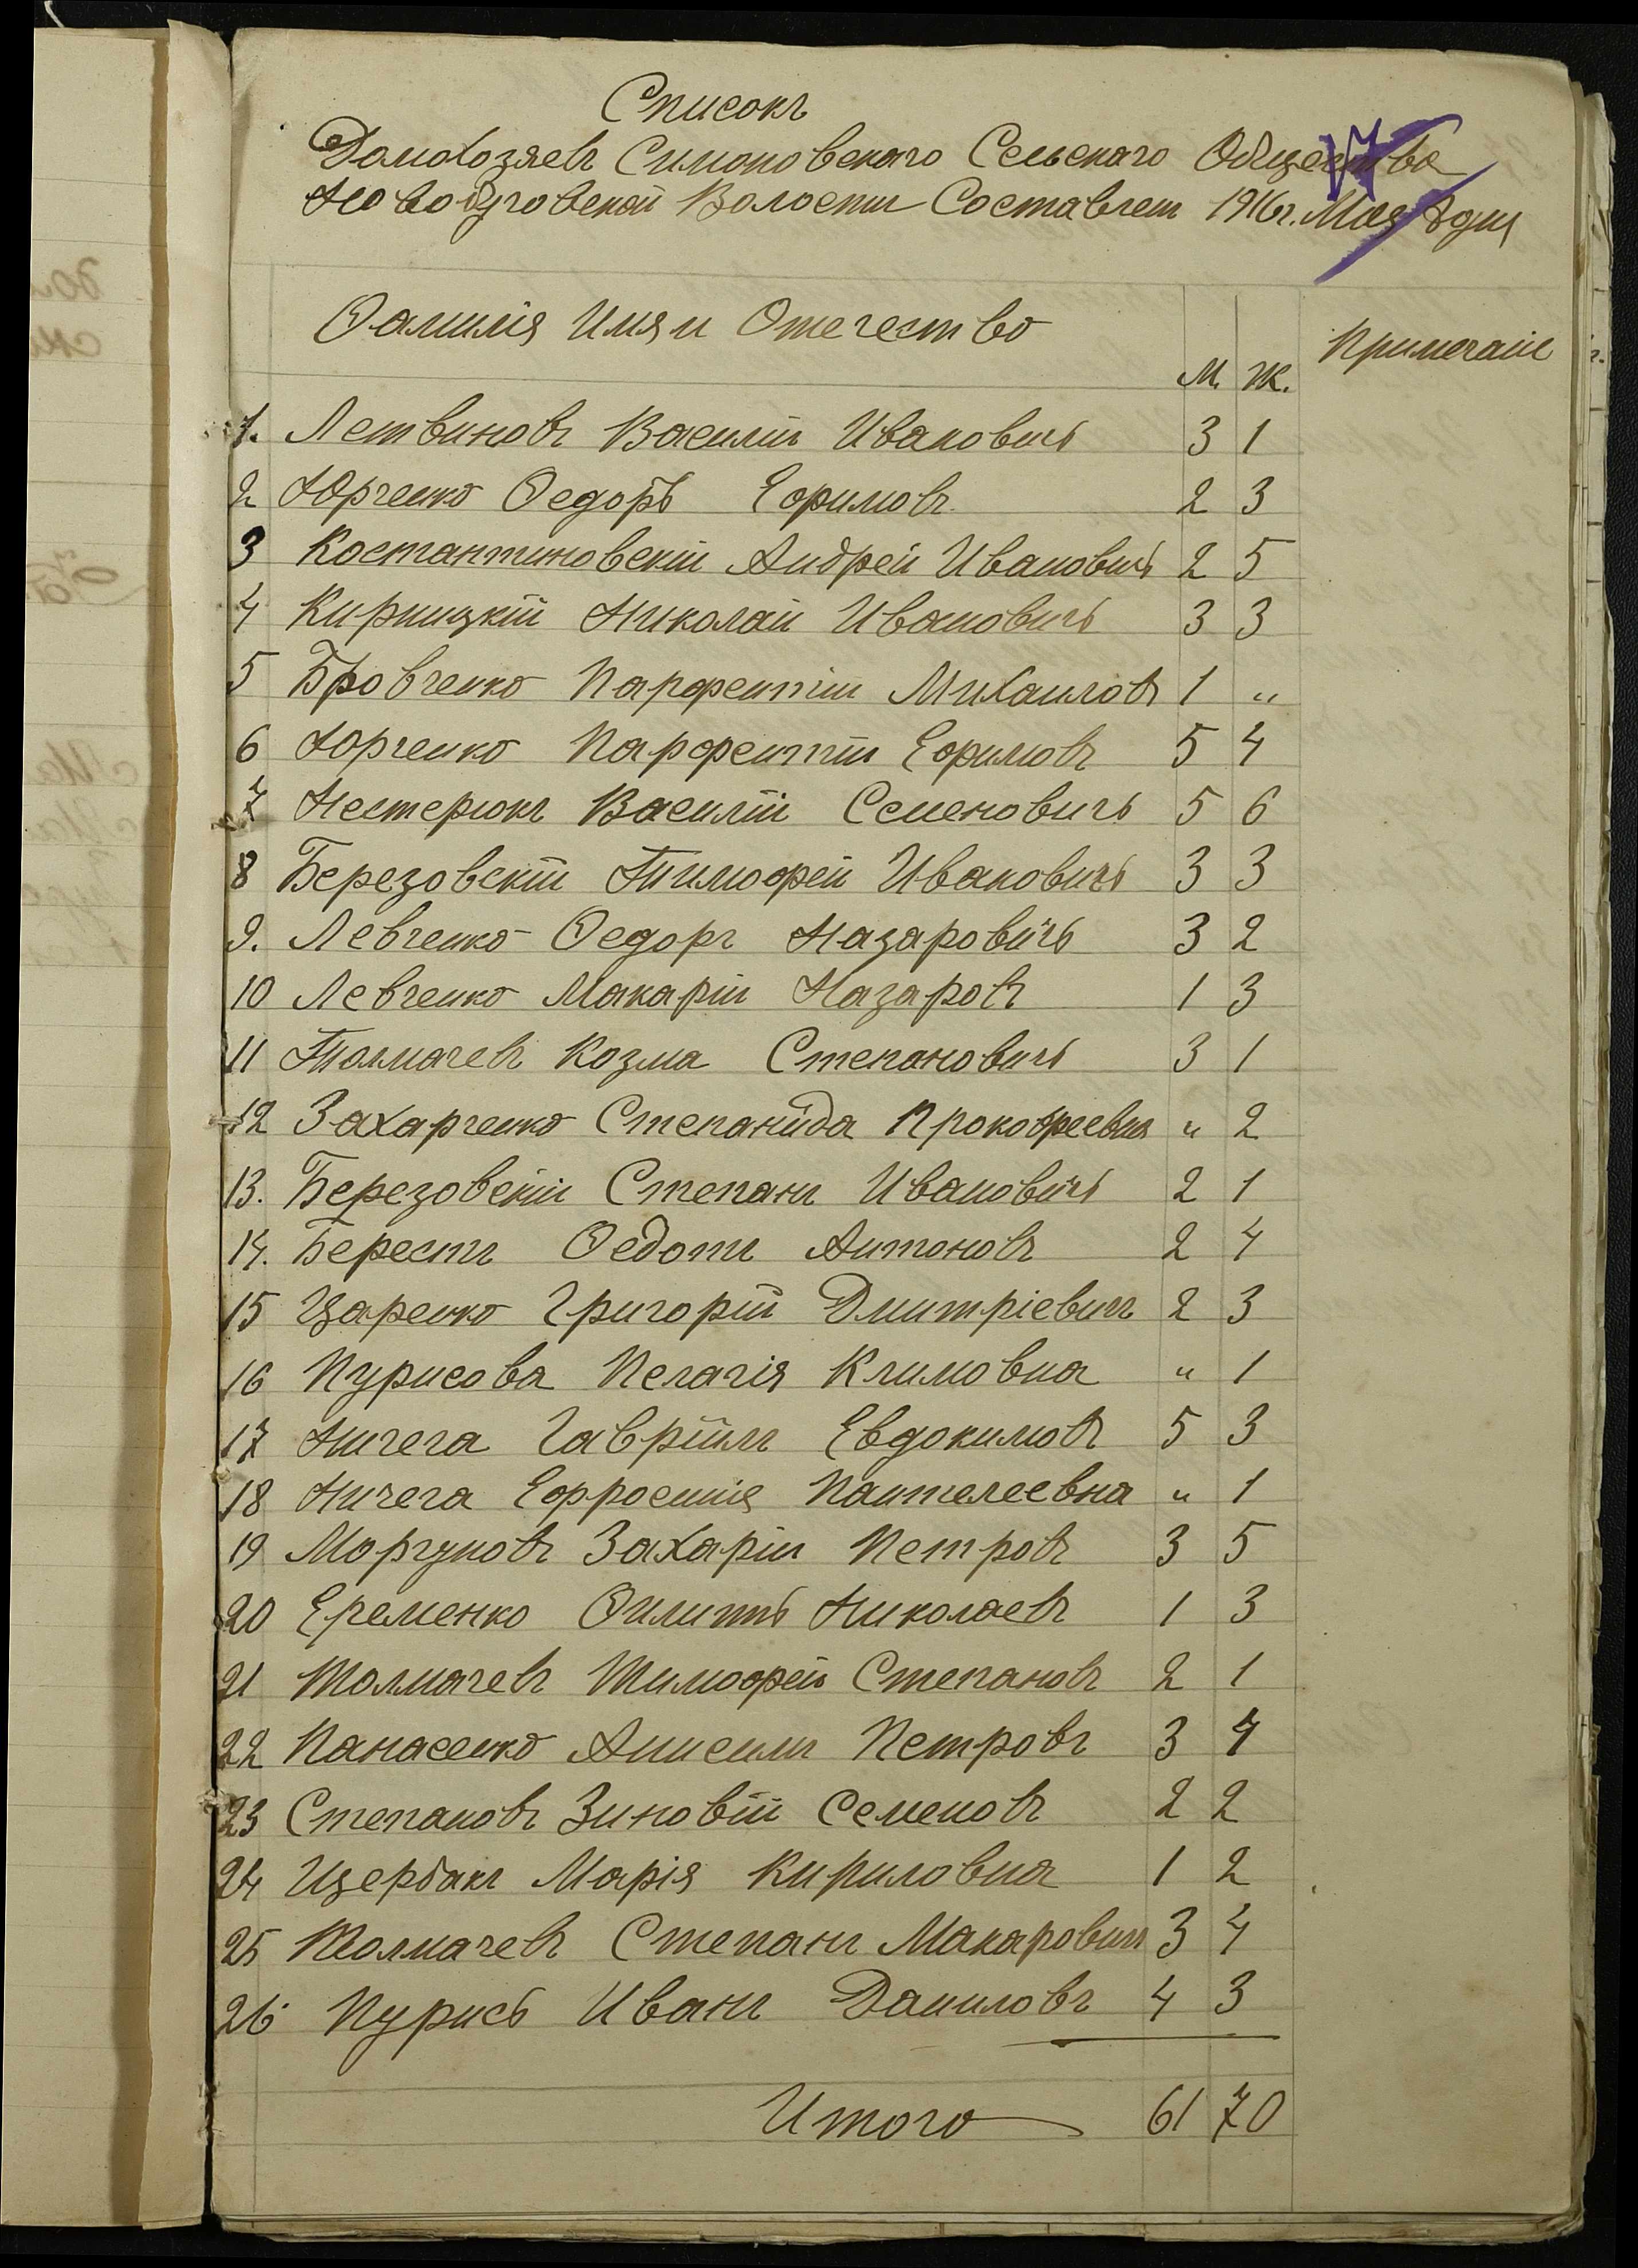 Списокъ
Домохозяевъ Симоновскаго Сельскаго Общества
Новобуговской Волости Составлен 1916 г. Мая 8 дня
17
Фамилія Имя и Отечество М. Ж. Примечаніе
1. Летвиновъ Василій Ивановичъ 3 1
2 Юрченко Федоръ Ефимовъ 2 3
3 Костантиновскій Андрей Ивановичъ 2 5
4 Кирницкій Николай Ивановичъ 3 3
5 Бровченко Парфентій Михаиловъ 1 "
6 Юрченко Парфентій Ефимовъ 5 4
7 Нестерюкъ Василій Семеновичъ 5 6
8 Березовскій Тимофей Ивановичъ 3 3
9. Левченко Федоръ Назаровичъ 3 2
10 Левченко Макарій Назаровъ 1 3
11 Толмачевъ Козма Степановичъ 3 1
12 Захарченко Степанида Прокофеевна " 2
13. Березовскій Степанъ Ивановичъ 2 1
14. Берестъ Федотъ Антоновъ 2 4
15 Царенко Григорій Дмитріевичъ 2 3
16 Пурисова Пелагія Климовна " 1
17 Ничега Гавріилъ Евдокимовъ 5 3
18 Ничега Ефросинія Пантелеевна " 1
19 Моргуновъ Захарій Петровъ 3 5
20 Еременко Филиппъ Николаевъ 1 3
21 Толмачевъ Тимофей Степановъ 2 1
22 Панасенко Анисимъ Петровъ 3 4
23 Степановъ Зиновій Семеновъ 2 2
24 Щербакъ Марія Кириловна 1 2
25 Толмачевъ Степанъ Макаровичъ 3 4
26. Пурисъ Иванъ Даниловъ 4 3
Итого 61 70